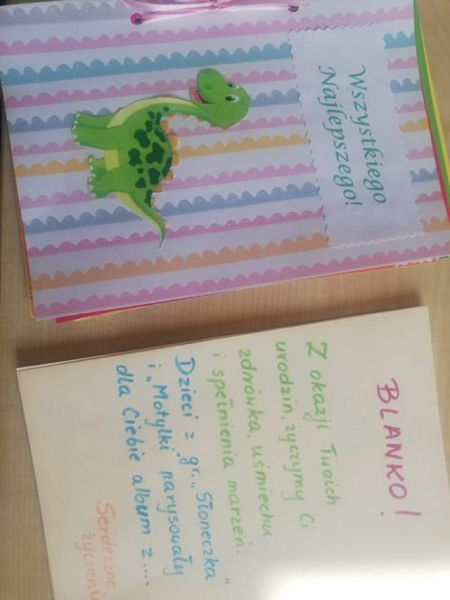 Wszystkiego
Najlepszego!
BLANKO!
Z okazji Twoich
urodzin, życzymy Ci
zdrówka, uśmiechu
i spełnienia marzeń.
Dzieci z gr. „Słoneczka"
i „Motylki" narysowały
dla Ciebie album z....
Serdeczne
życzenia